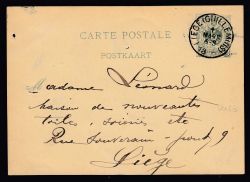 CARTE POSTALE
POSTKAART
LIEGE (GUILLEMINS)
Madame Léonard
maison de nouveautés
toiles, soieries etc
Rue Souverain-pont 9
Liège